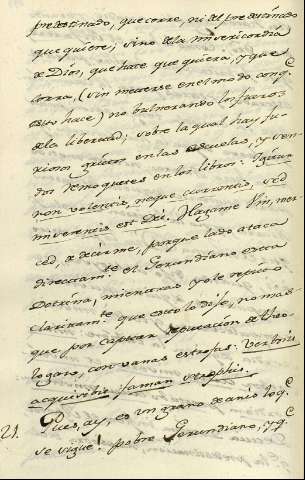 predestinado, que corre, ni del predestinado
que quiere; sino de la misericordia
de Dios, que hace que quiera, y que
corra, (sin meterse en el modo con q.
esto hace) no vulnerando los fueros
de la libertad; sobre la qual hay fu-
riosos gritos en las escuelas, y ven-
dos remoquetes en los libros: Igitur
non volentis, neque currentis, sed
miserentis est Dei. Hagame Vm, mer-
ced, a decirme, porque lado ataca
directam.te el Gerundiano esta
Dotrina, mientras yo le repito
clarisim.te que esto lo dise, no mas
que por captar reputacion de Theo-
logazo, con vanas estrofas: verbosis
acquisivit famam strophis.
21. Pues, ay, es un grano de anis lo q.e
se sigue! pobre Gerundiano, y q.e